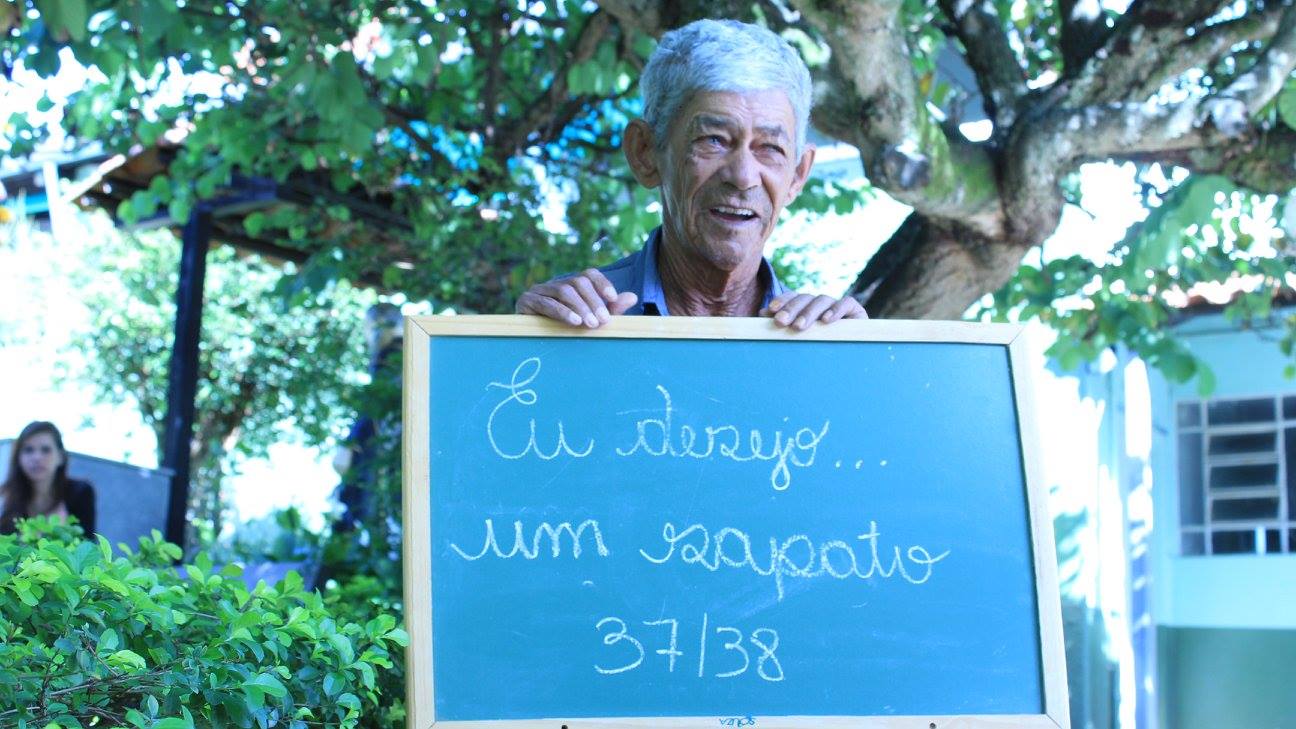 Eu desejo...
um sapato
37/38